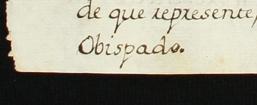 de que represente,
Obispado.